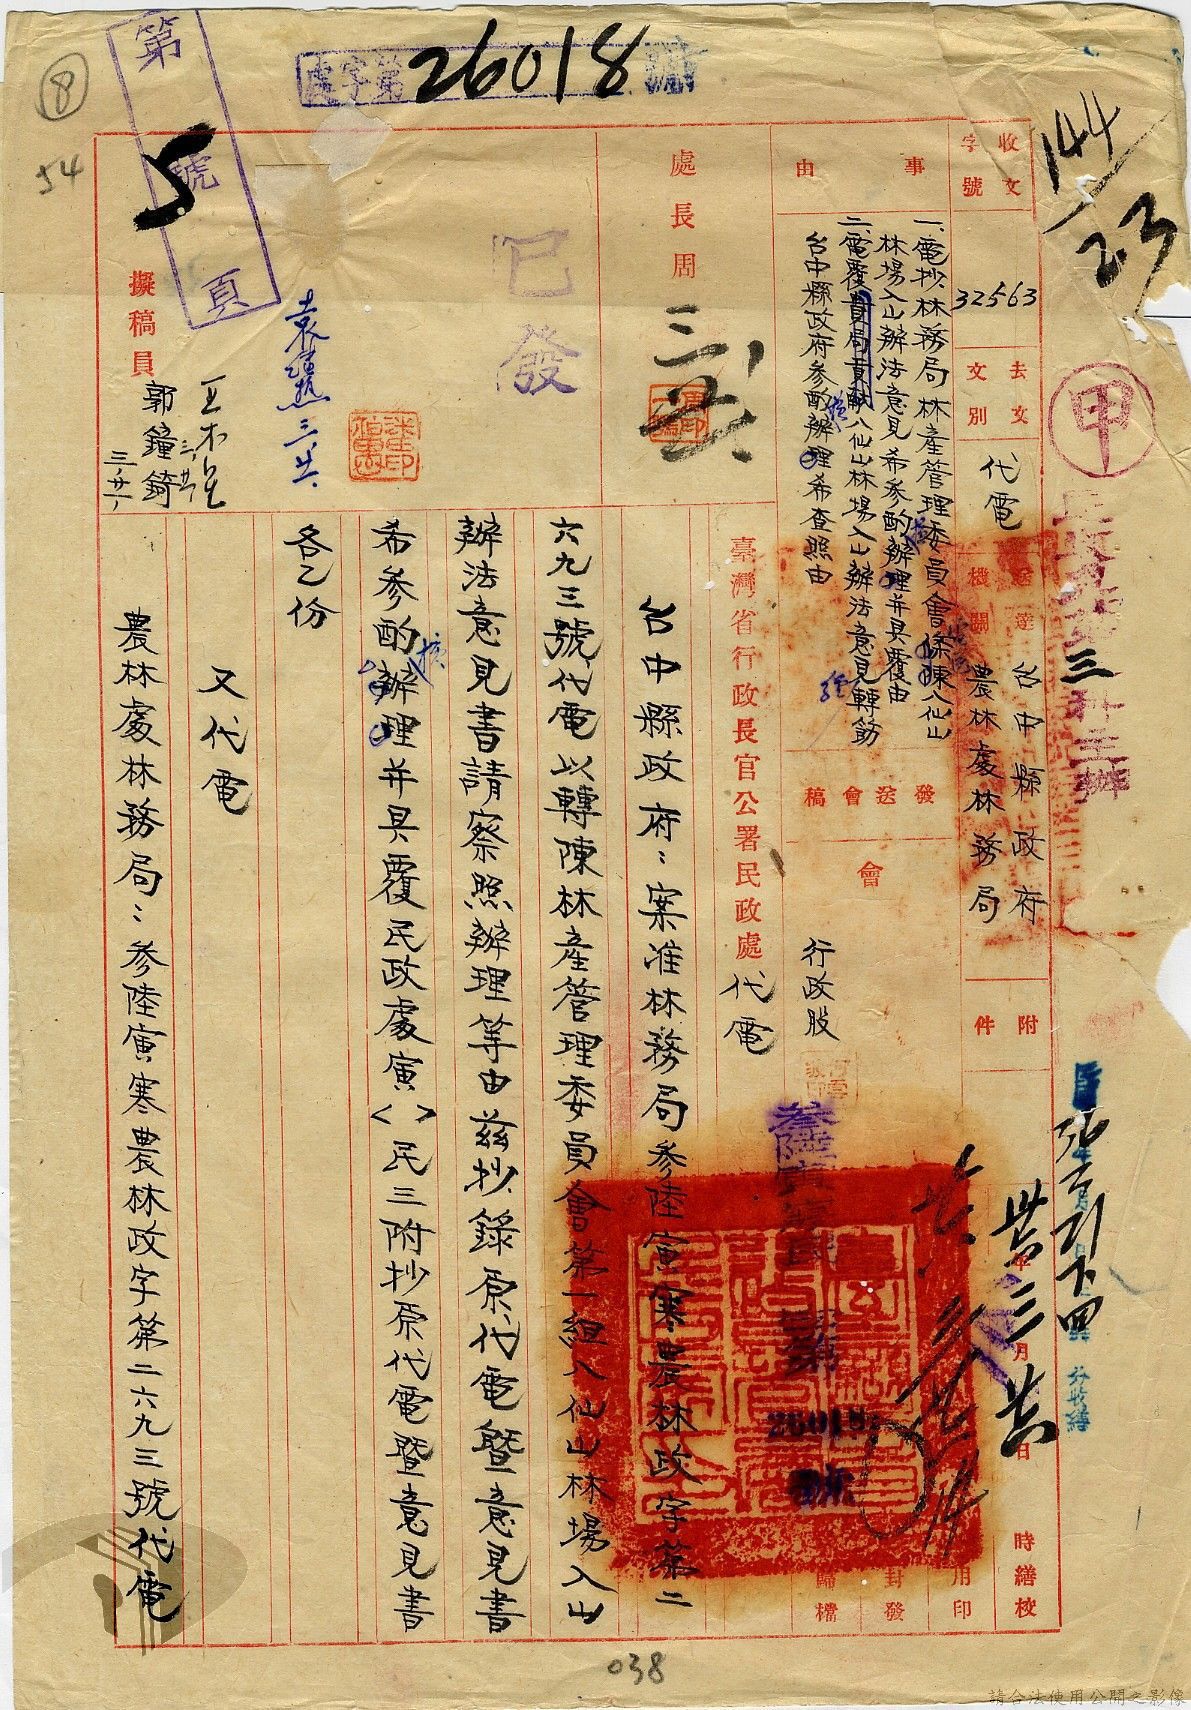 26018
處字第 號
第 號 頁
5
8
54
144
23
收文字號
32563
去文別
代電
送達機關
台中縣政府
農林處林務局
附件
事由
一、電抄林務局林產管理委員會條陳八仙山
林場入山辦法意見希參酌辦理并具覆由
二、電覆貴局貢獻八仙山林場入山辦法意見轉飭
台中縣政府參酌辦理希查照由
發送會稿
會
行政股
處長周
已發
甲
擬稿員
郭鐘錡
三、廿一、
臺灣省行政長官公署民政處代電
台中縣政府：案准林務局參陸寅寒農林政字第二
六九三號代電以轉陳林產管理委員會第一組八仙山林場入山
辦法意見書請察照辦理等由茲抄錄原代電暨意見書
希參酌辦理并具覆民政處寅〈〉民三附抄原代電暨意見書
各乙份
又代電
農林處林務局：參陸寅寒農林政字第二六九三號代電
年三月
日
時繕校
用印
封發
歸檔
第
26018
號
038
請合法使用公開之影像